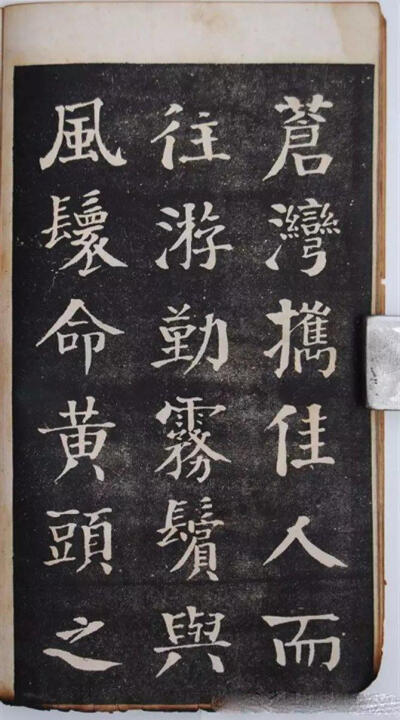 蒼灣攜佳人而
往游勤霧鬢與
風鬟命黃頭之